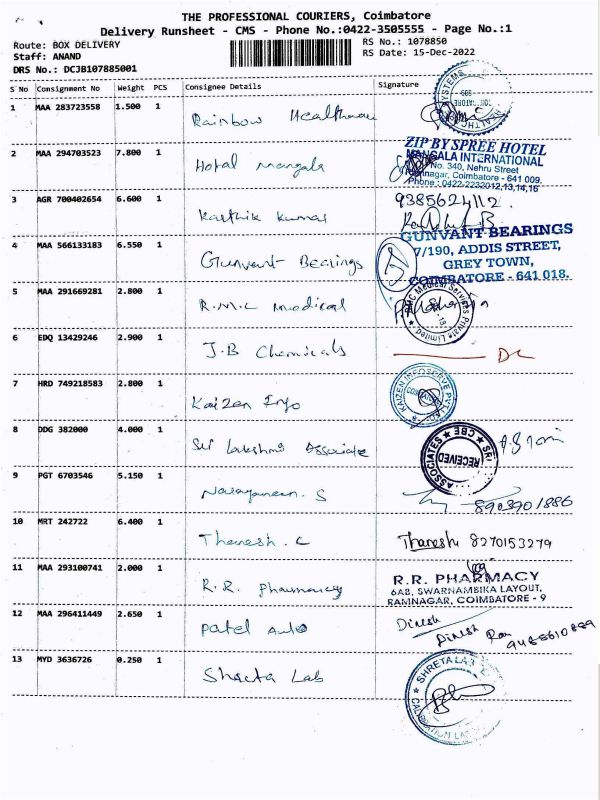 THE PROFESSIONAL COURIERS, Coimbatore
Delivery Runsheet - CMS - Phone No.:0422-3505555 - Page No.:1
Route: BOX DELIVERY
RS No.: 1078850
Staff: ANAND
RS Date: 15-Dec-2022
DRS No.: DCJB107885001
S No Consignment No Weight PCS Consignee Details Signature
1 MAA 283723558 1.500 1 Rainbow
2 MAA 294703523 7.800 1 Hotal Mangala
ZIP BY SPREE HOTEL
MANGALA INTERNATIONAL
No. 340, Nehru Street
Coimbatore - 641 009.
Phone : 0422-2232012,13,14,16
3 AGR 700402654 6.600 1 Karthik Kumar
9385624112.
4 MAA 566133183 6.550 1 Gunvant Bearings
GUNVANT BEARINGS
7/190, ADDIS STREET,
GREY TOWN,
COIMBATORE - 641 018.
5 MAA 291669281 2.800 1 R.M.C Medical
RMC Medical Services Private Limited
6 EDQ 13429246 2.900 1 J.B Chemicals
7 HRD 749218583 2.800 1 Kaizen Info
KAIZEN INFOSERVE PVT LTD
8 DDG 382000 4.000 1 Sri Lakshmi Associate
ASSOCIATES ★ CBE ★ SRI
RECEIVED
9 PGT 6703546 5.150 1 Narayanan. S
8903901886
10 MRT 242722 6.400 1 Thanesh. C
Thanesh 8270153279
11 MAA 293100741 2.000 1 R.R. Pharmacy
R.R. PHARMACY
6AB, SWARNAMBIKA LAYOUT,
RAMNAGAR, COIMBATORE - 9
12 MAA 296411449 2.650 1 Patel Auto
Dinesh
Dinesh
13 MYD 3636726 0.250 1 Shreta Lab
SHRETA LAB